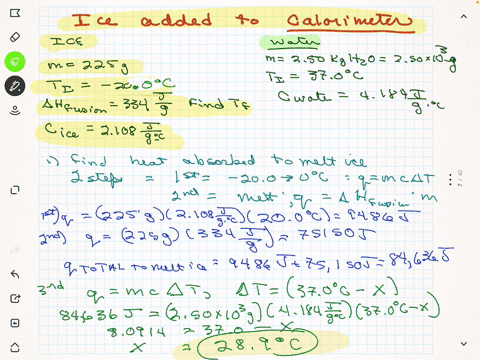 Ice added to Calorimeter
ICE
m = 225 g
TI = -20.0°C
ΔHfusion = 334 J/g Find Tf
Cice = 2.108 J/g°C
Water
m = 2.50 Kg H2O = 2.50 x 10³ g
TI = 37.0°C
Cwate = 4.184 J/g·°C
1) Find heat absorbed to melt ice
2 steps = 1st = -20.0 → 0°C = q = mcΔT
2nd = melt, q = ΔHfusion · m
1st) q = (225 g)(2.108 J/g°C)(20.0°C) = 9486 J
2nd) q = (225g)(334 J/g) = 75150 J
q TOTAL to melt ice = 9486 J + 75,150 J = 84,636 J
3rd q = mcΔT, ΔT = (37.0°C - X)
84636 J = (2.50 x 10³ g)(4.184 J/g°C)(37.0°C - X)
8.0914 = 37.0 - X
X = 28.9°C